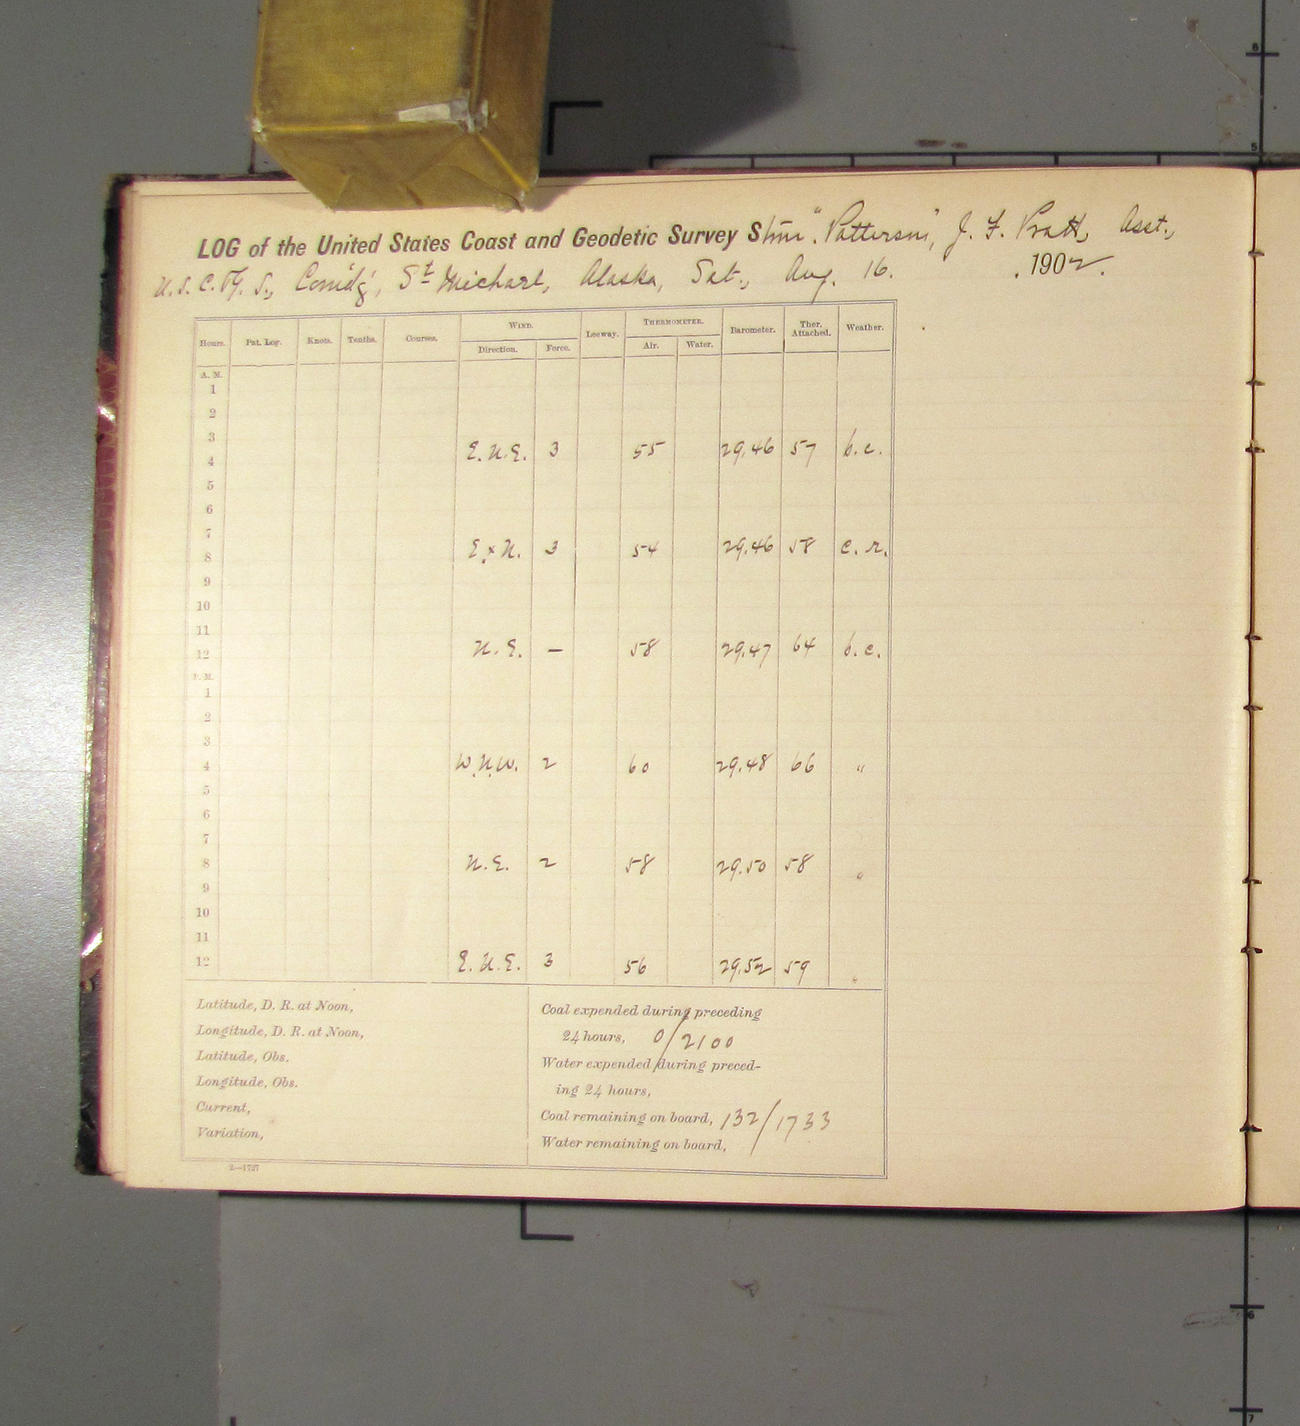 LOG of the United States Coast and Geodetic Survey Stmr. "Patterson", J. F. Pratt, Asst.,
U. S. C. & G. S., Com'd'g, St Michael, Alaska, Sat., Aug. 16. , 1902.
Hours. Pat. Log. Knots. Tenths. Courses. WIND. Leeway. THERMOMETER. Barometer. Ther. Attached. Weather.
Direction. Force. Air. Water.
A. M.
1
2
3
4 E.N.E. 3 55 29.46 57 b.c.
5
6
7
8 E.xN. 3 54 29.46 58 c.r.
9
10
11
12 N.E. — 58 29.47 64 b.c.
P. M.
1
2
3
4 W.N.W. 2 60 29.48 66 "
5
6
7
8 N.E. 2 58 29.50 58 "
9
10
11
12 E.N.E. 3 56 29.52 59 "
Latitude, D. R. at Noon,
Longitude, D. R. at Noon,
Latitude, Obs.
Longitude, Obs.
Current,
Variation,
Coal expended during preceding
24 hours, 0/2100
Water expended during preced-
ing 24 hours,
Coal remaining on board, 132/1733
Water remaining on board,
2—1727
5
6
6
7